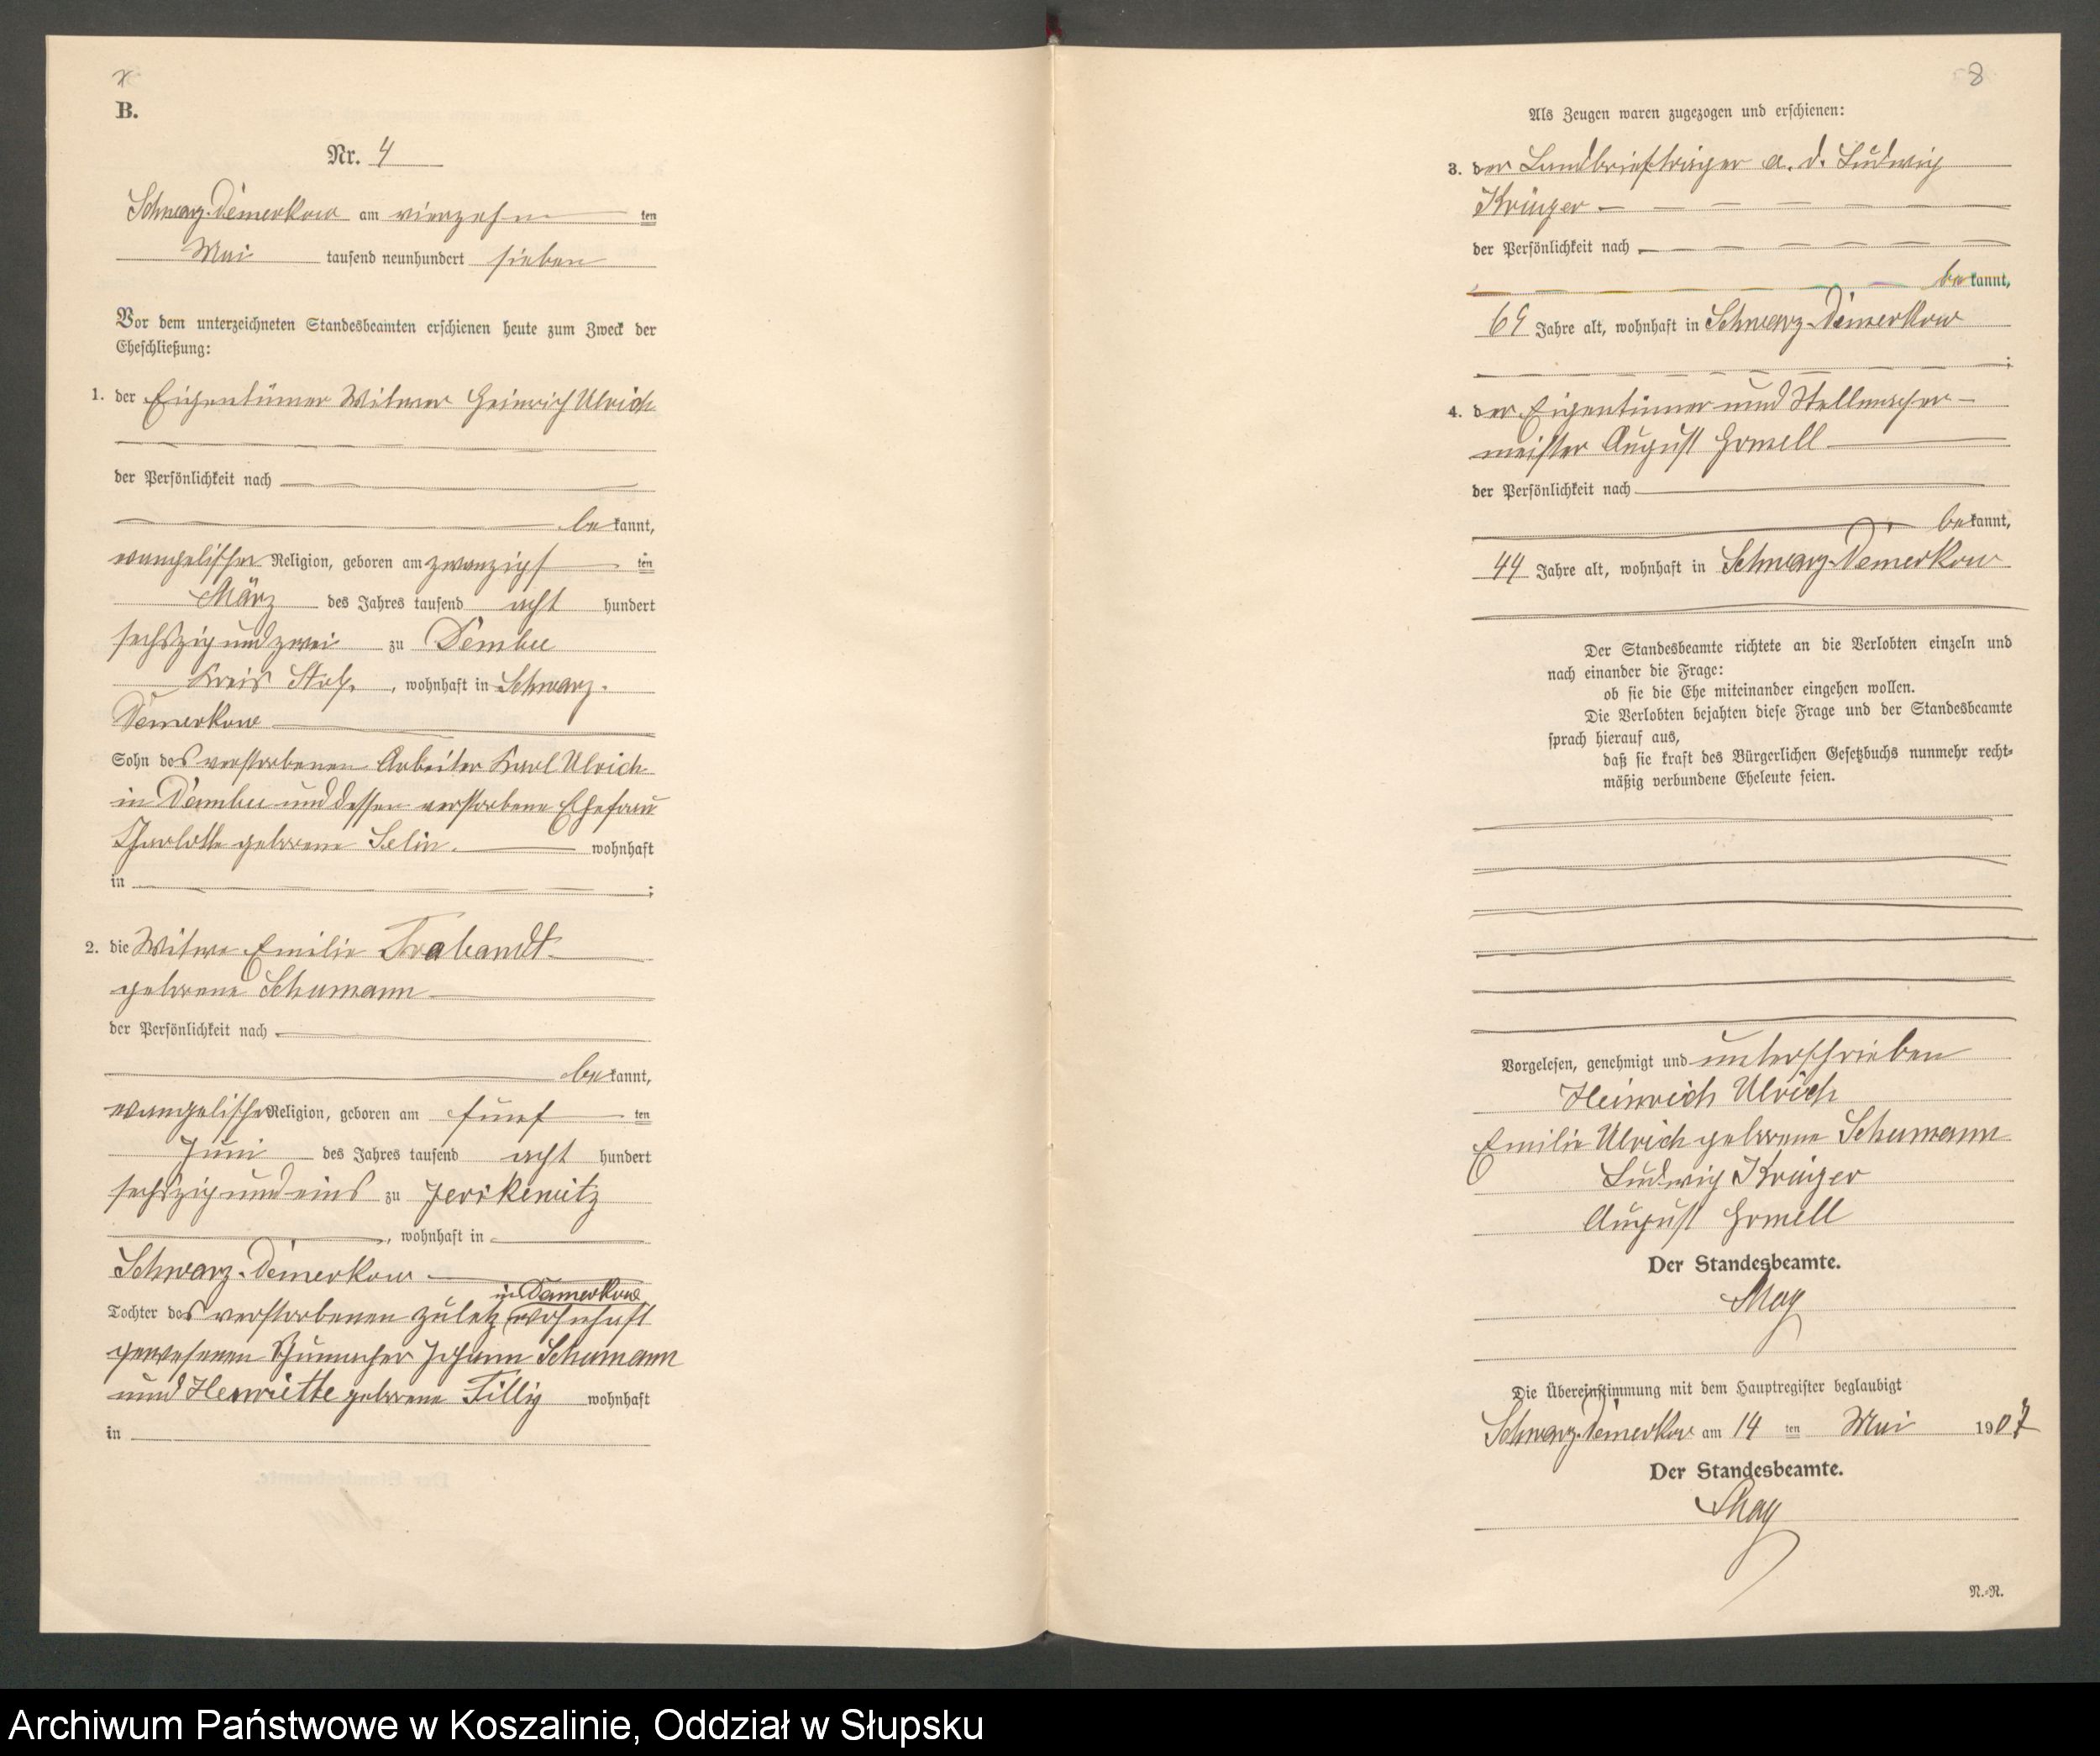 B.
Nr. 4
Schwarz-Damerkow am vierzehn ten
Mai tausend neunhundert sieben
Vor dem unterzeichneten Standesbeamten erschienen heute zum Zweck der
Eheschließung:
1. der Eigentümer Witwer Heinrich Ulrich
der Persönlichkeit nach
be kannt,
evangelischer Religion, geboren am zwanzigs ten
März des Jahres tausend acht hundert
sechszig und zwei zu
Kreis Stolp, wohnhaft in Schwarz-
Damerkow
Sohn des verstorbenen Arbeiter Karl Ulrich
in und dessen verstorbene Ehefrau
Charlotte geborene Selin. wohnhaft
in ;
2. die Witwe Emilie Trabandt
geborene Schumann
der Persönlichkeit nach
be kannt,
evangelischer Religion, geboren am fünf ten
Juni des Jahres tausend acht hundert
sechszig und eins zu Jerskewitz
, wohnhaft in
Schwarz-Damerkow
in Damerkow
Tochter des verstorbenen zuletz wohnhaft
gewesenen Johann Schumann
und Henriette geborene Tillig wohnhaft
in
8
Als Zeugen waren zugezogen und erschienen:
3. der Landbriefträger a. d. Ludwig
Krüger
der Persönlichkeit nach
be kannt,
69 Jahre alt, wohnhaft in Schwarz-Damerkow
;
4. der Eigentümer und Stellmacher-
meister August Gomell
der Persönlichkeit nach
be kannt,
44 Jahre alt, wohnhaft in Schwarz-Damerkow
Der Standesbeamte richtete an die Verlobten einzeln und
nach einander die Frage:
ob sie die Ehe miteinander eingehen wollen.
Die Verlobten bejahten diese Frage und der Standesbeamte
sprach hierauf aus,
daß sie kraft des Bürgerlichen Gesetzbuchs nunmehr recht-
mäßig verbundene Eheleute seien.
Vorgelesen, genehmigt und unterschrieben
Heinrich Ulrich
Emilie Ulrich geborene Schumann
Ludwig Krüger
August Gomell
Der Standesbeamte.
May
Die Übereinstimmung mit dem Hauptregister beglaubigt
Schwarz-Damerkow am 14 ten Mai 1907
Der Standesbeamte.
May
N.-N.
Archiwum Państwowe w Koszalinie, Oddział w Słupsku